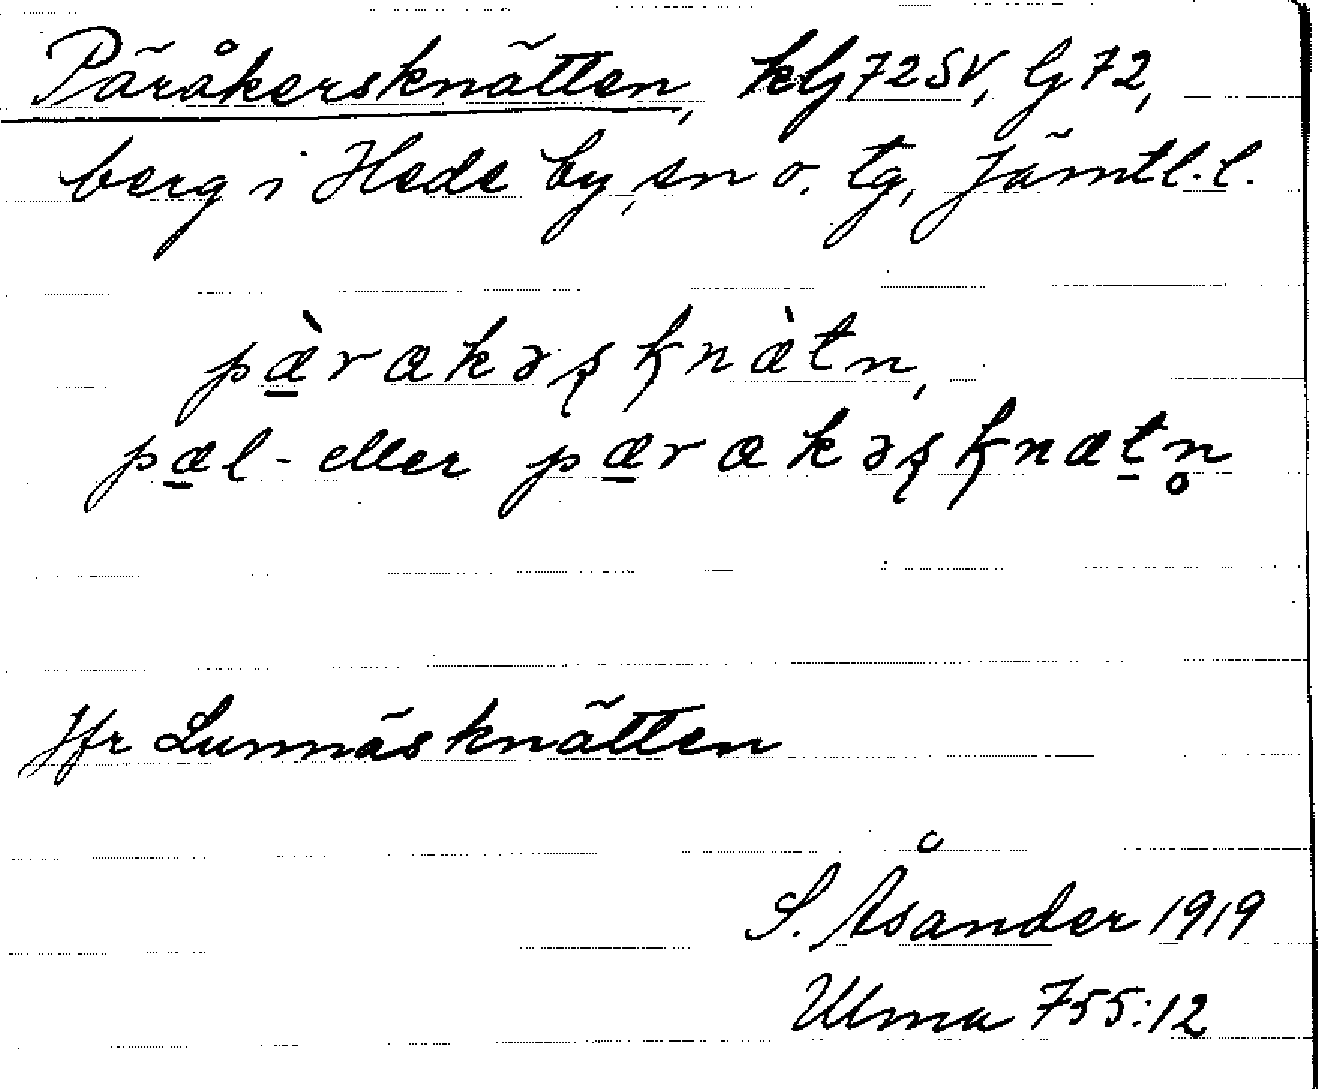 Päråkersknätten, kLg72SV, Lg72,
berg i Hede by, sn o. tg, Jämtl.l.
pæ̀rakəʂknætn,
pæl- eller pærakəʂknætn̥
Jfr Lunnäsknätten
S. Åsander 1919
Ulma 755:12